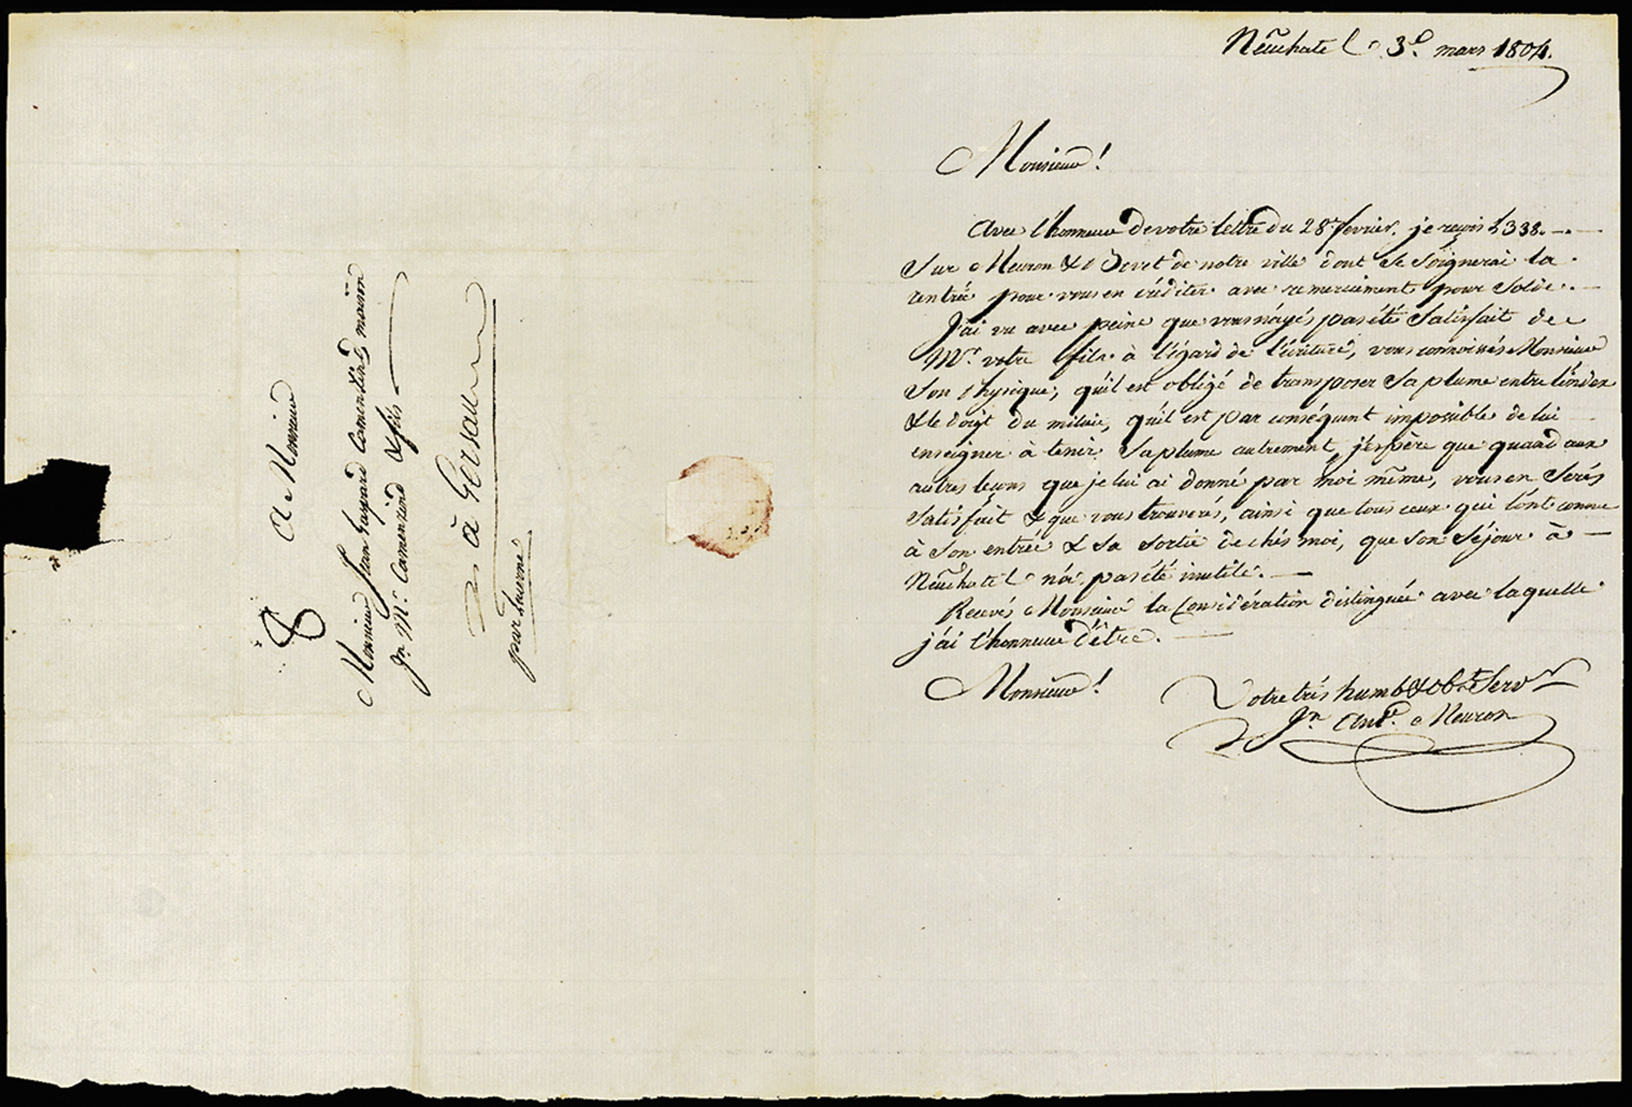 A Monsieur
Monsieur Jean Gaspard Camenzind, maison
Jn. Mc. Camenzind & fils
à Gersau
par Lucerne
Neuchatel 3e. mars 1804.
Monsieur!
Avec l'honneur de votre lettre du 28 fevrier. je reçois L 338.
Sur Meuron & Bovet de notre ville dont Je Soignerai la
rentrée pour vous en créditer avec remerciement pour Solde.
J'ai vu avec peine que vous n'ayés pas été Satisfait de
Mr. votre fils à l'égard de l'écriture, vous connoissés Monsieur
Son Physique, qu'il est obligé de transposer Sa plume entre l'index
& le doigt du milieu, qu'il est par conséquent impossible de lui
enseigner à tenir Sa plume autrement, j'espère que quand aux
autres leçons que je lui ai donné par moi même, vous en Serés
Satisfait & que vous trouverés, ainsi que tous ceux qui l'ont connu
à Son entrée & Sa Sortie de chés moi, que Son Séjour à
Neuchatel n'a pas été inutile.
Recevés Monsieur la Considération distinguée avec laquelle
j'ai l'honneur d'être.
Monsieur!
Votre très humb & obt Servr
Jn. And. Meuron